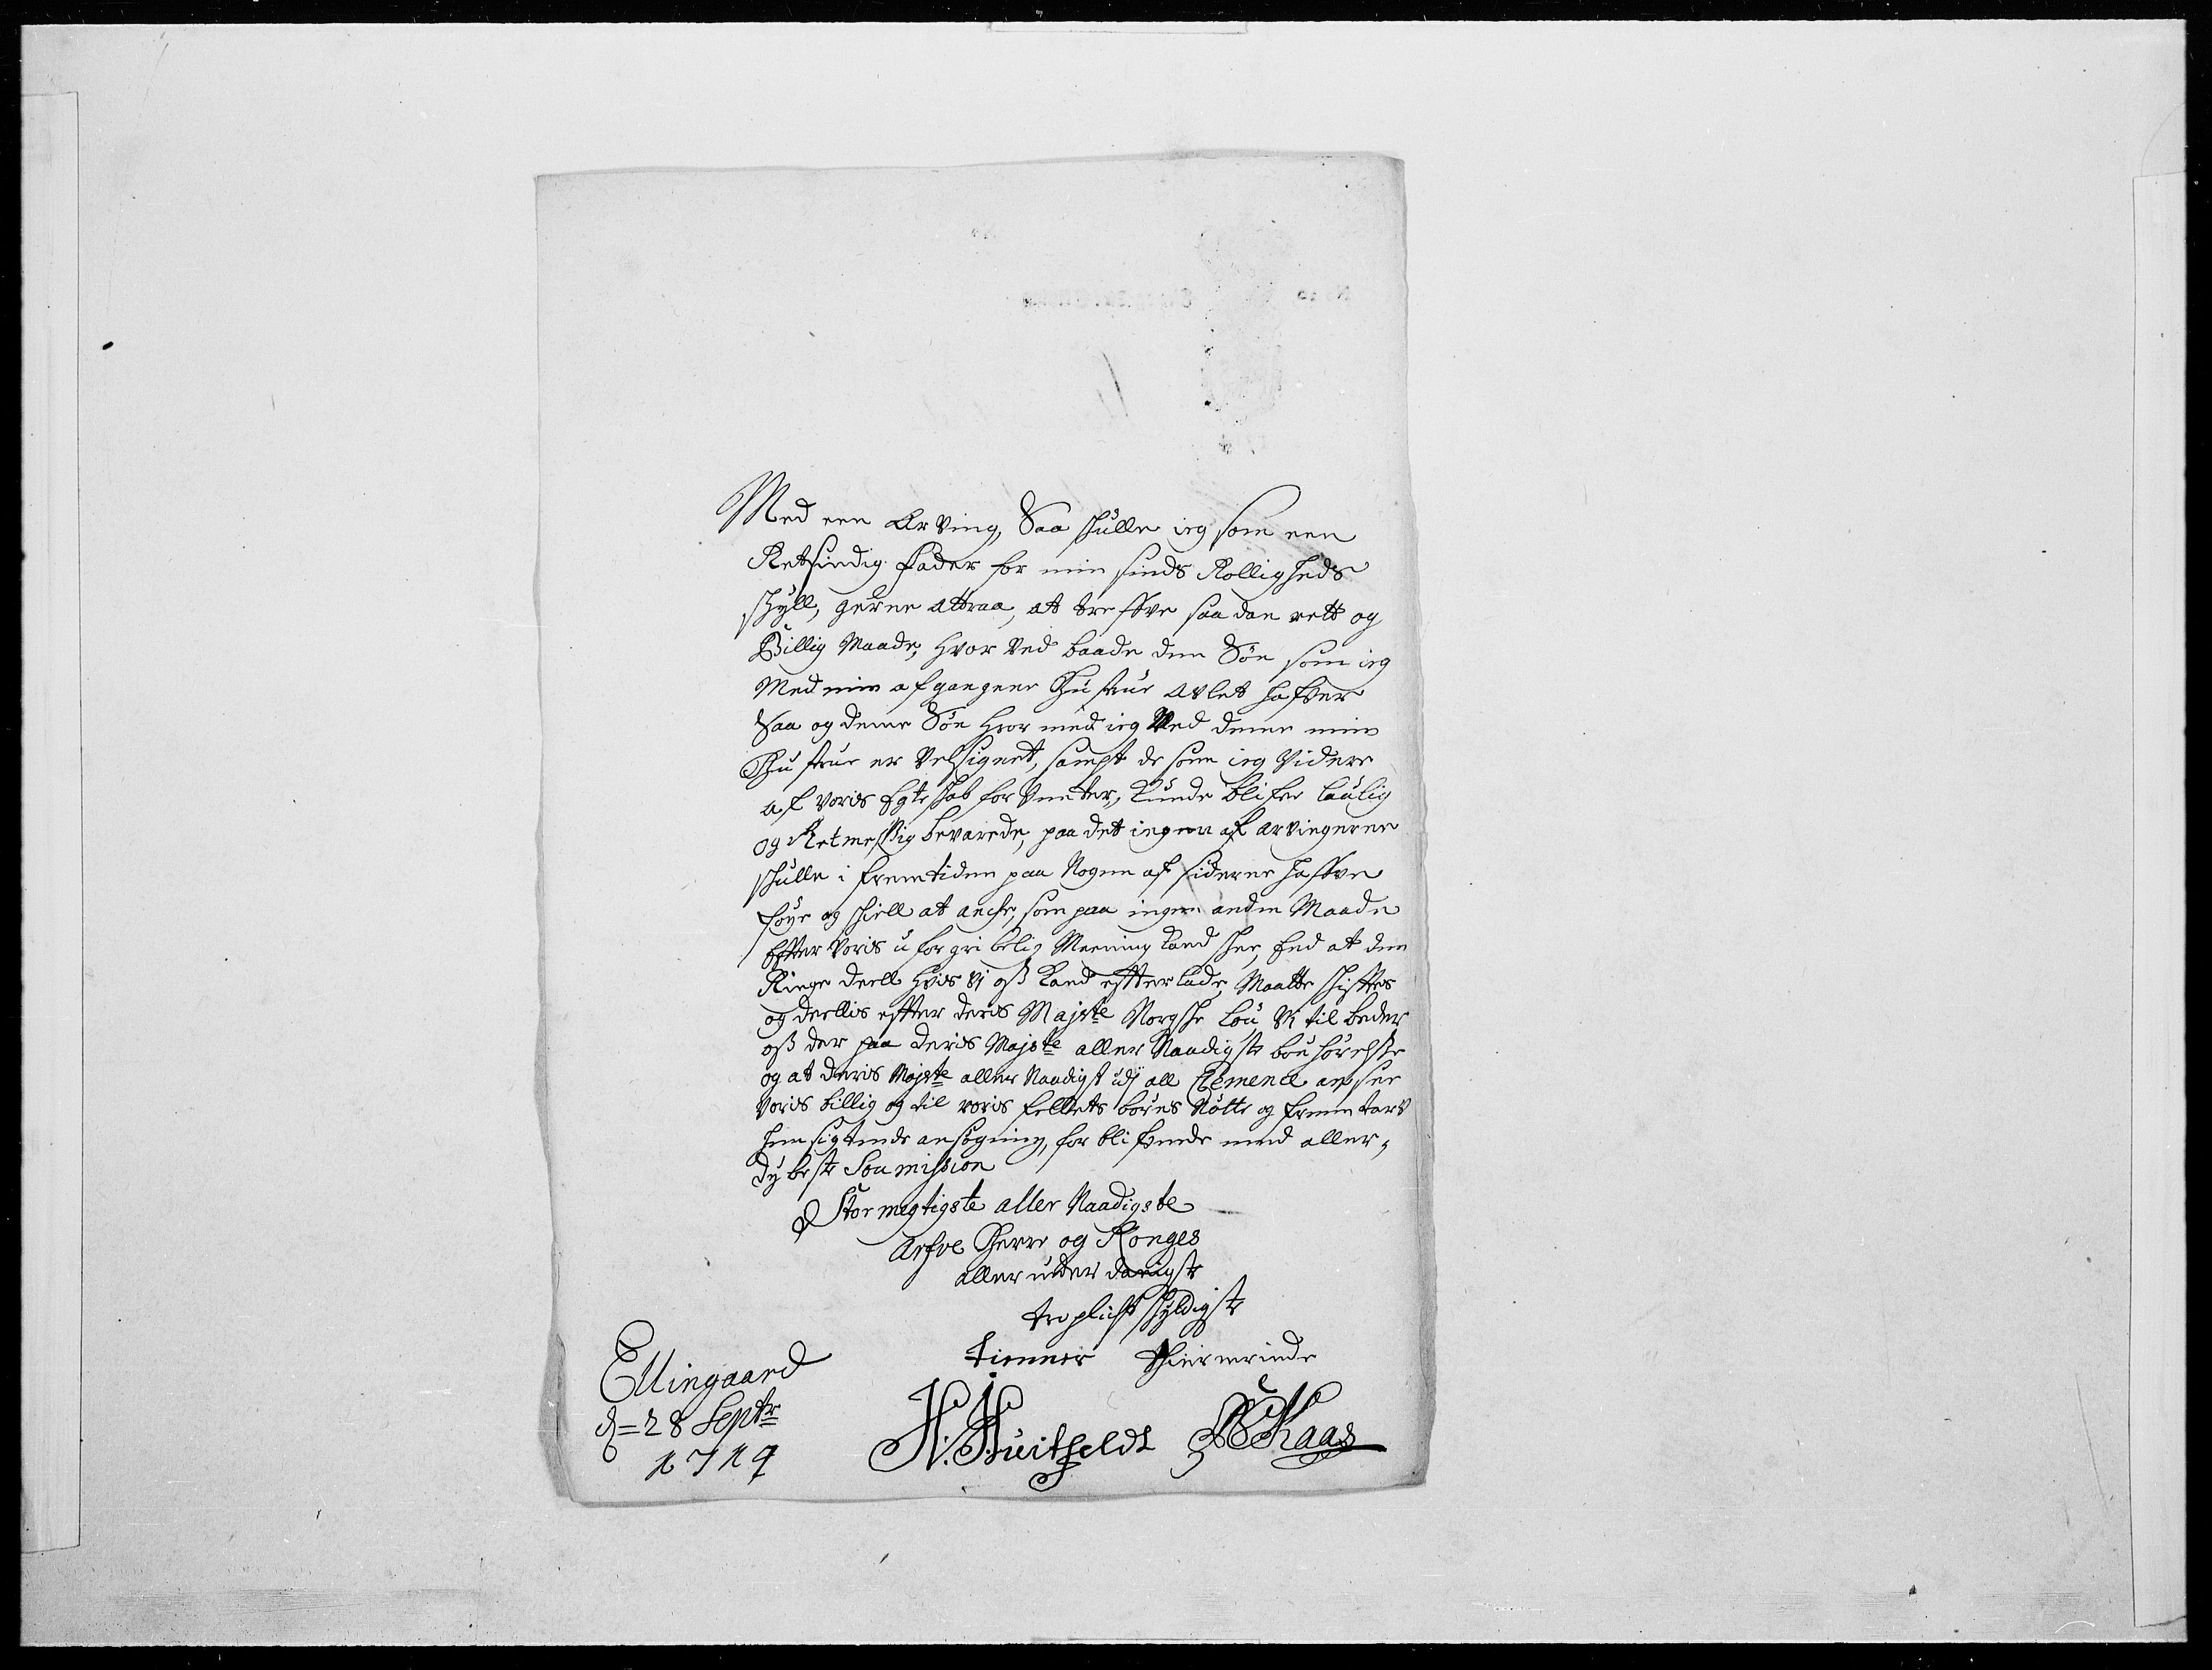 Med een Arving, Saa skulle ieg som een
Retsindig fader for min sinds Rolligheds
skyll, gerne attraa, at treffve saadan rett og
Billig Maade, hvor ved baade den Søn som ieg
Med min afgangene Hustrue avlet hafver
Saa og denne Søn hvor med ieg Ved denne min
Hustrue er Velsignet, sampt de som ieg Videre
af voris Egteskab for Venter, kunde blifve laulig
og Retmessig bevarede, paa det ingen af arvingerne
skulle i fremtiden paa Nogen af siderne haffve
føye og skiell at ancke, som paa ingen anden Maade
Efter Voris uforgribelig Meening kand skee, End at den
Ringe deell hvis Vi oß kand effterlade, Maatte skifftes
og deellis effter deris Majste Norgske Lou, Vi til beder
oß der paa Deris Majste aller Naadigste bønhørelße
og at Deris Majste aller Naadigst udj all Clemence anser
Voris billig og til voris felleds børns Nøtte og fremtarv
hensigtende ansøgning, for blifvende med aller-
dybeste Soumission
Stormegtigste aller Naadigste
Arfve Herre og Konges
aller under danigste
troplicht skyldigste
tienner Thienerinde
Ellingaard
d=28 Septr
1719
H: Huitfeldt Kaas